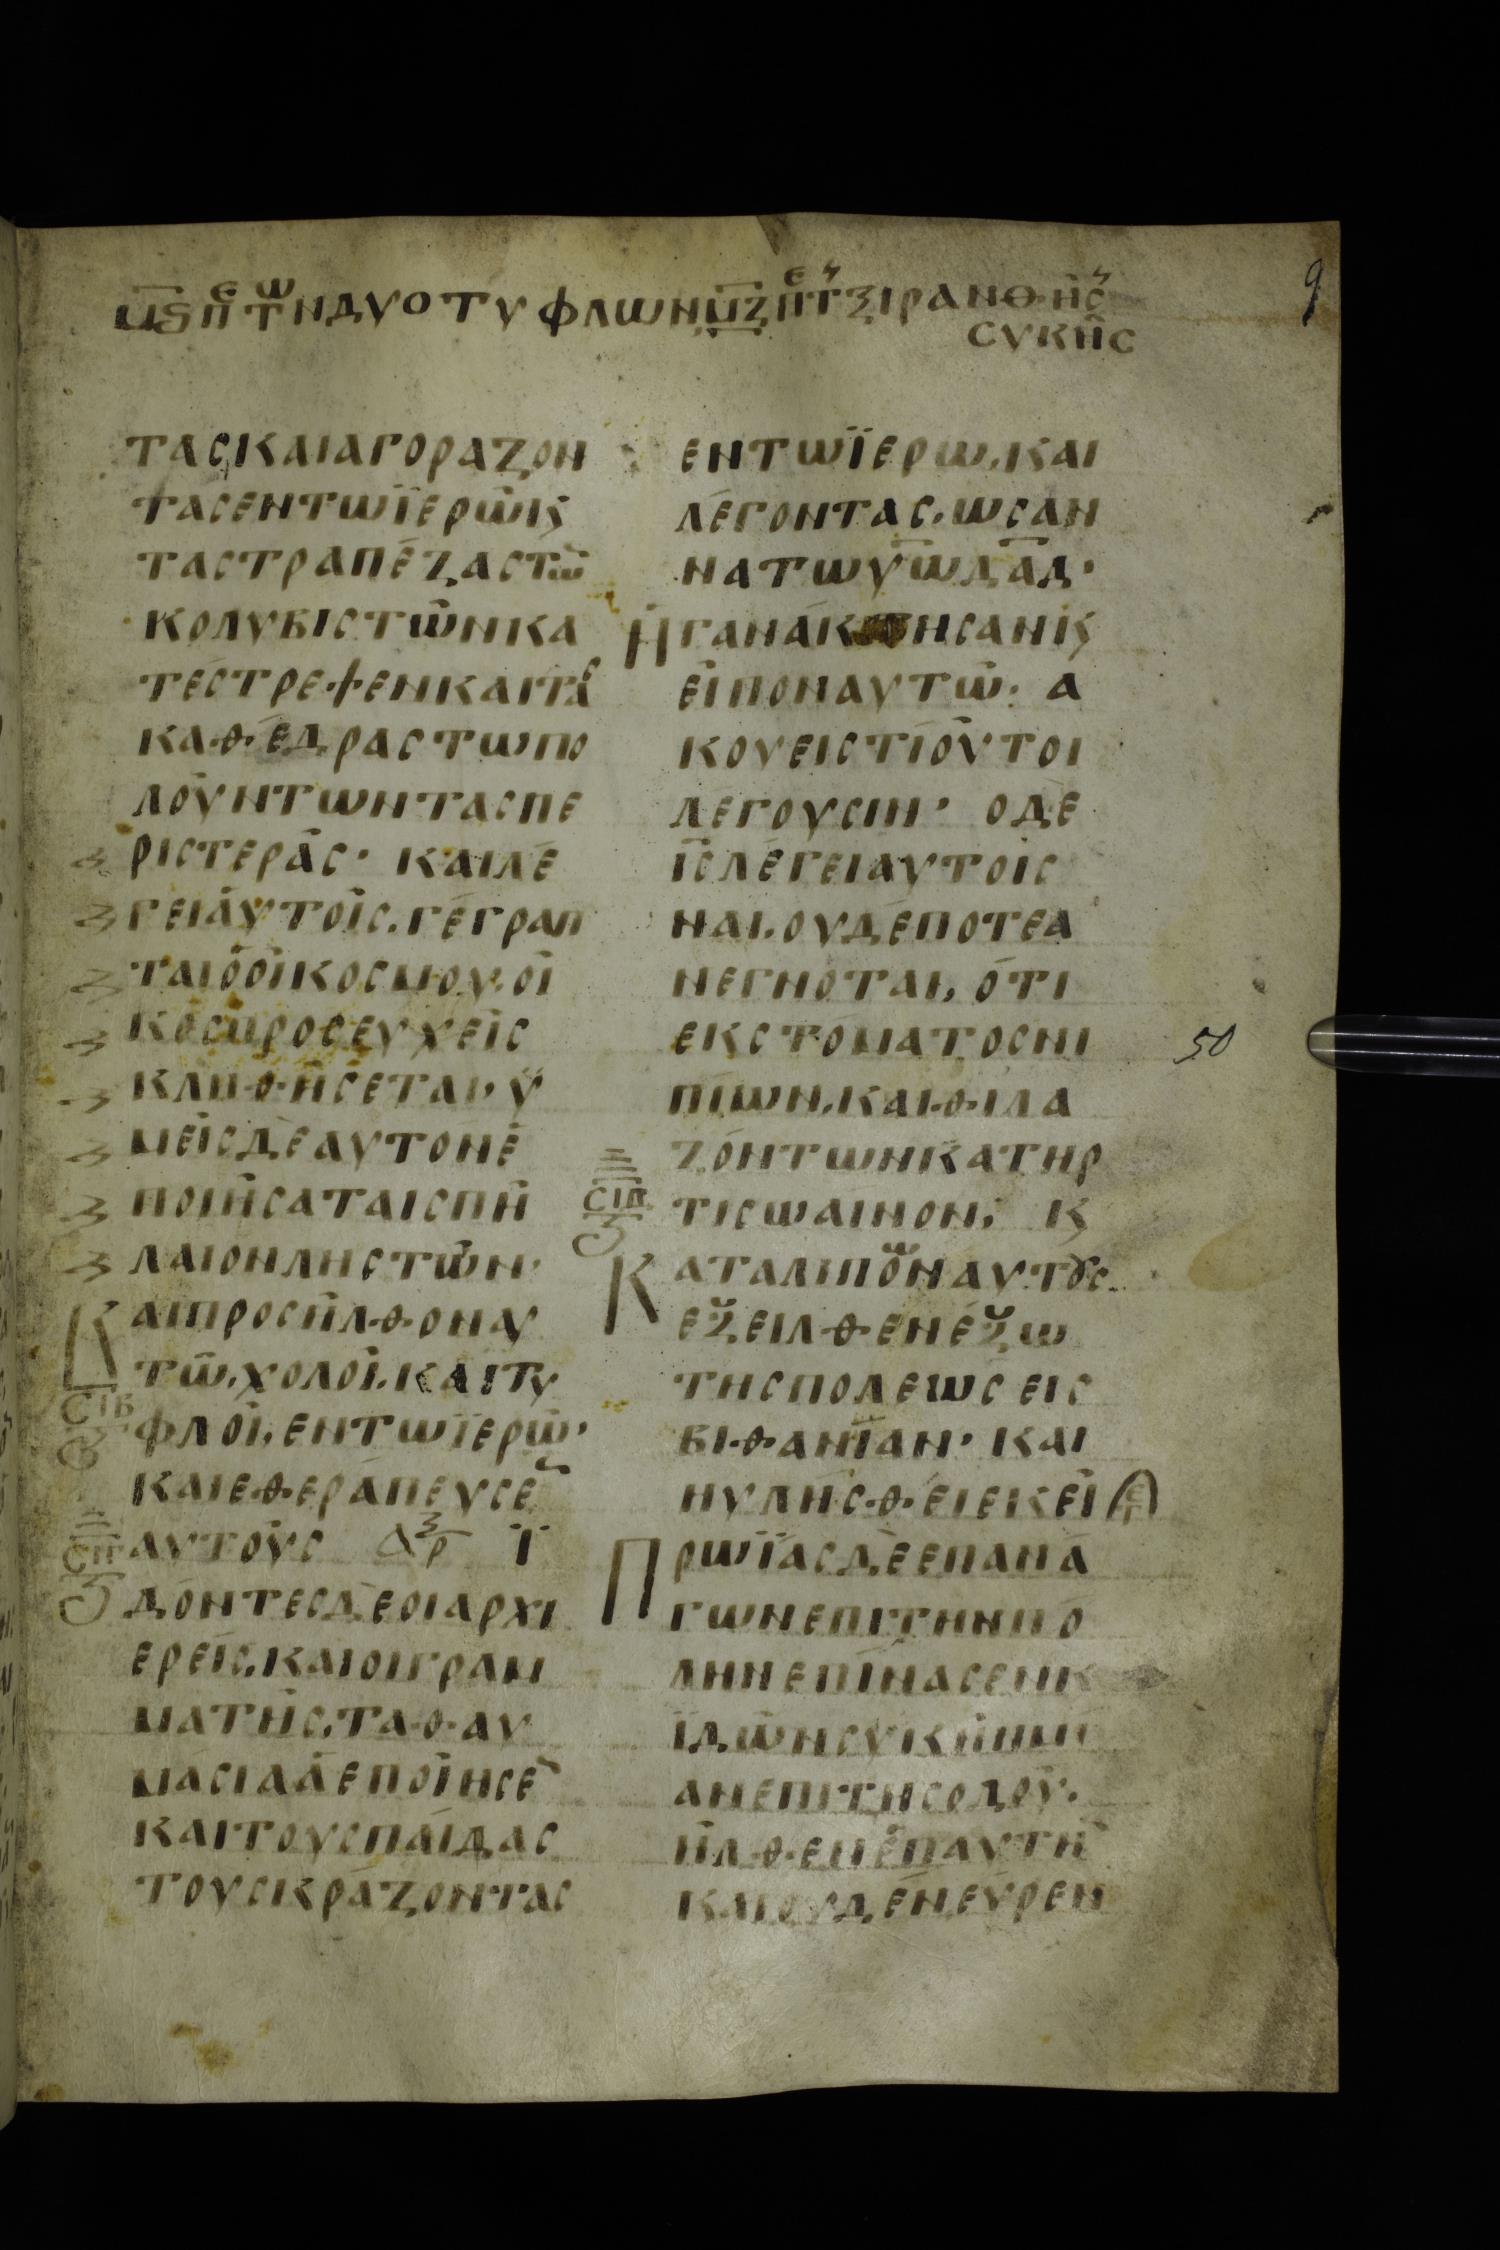 μ̅ϛ̅ πε τω̅ν δυο τυφλων μ̅ζ̅ πε τ ξιρανθης
συκης
9
τας και αγοραζον
τας εν τω ϊερω κϛ
τας τραπεζας τω̅
κολυβιστων κα
τεστρεψεν και τας
καθεδρας τω πο
λουντων τας πε
ριστερας· και λε
γει αυτοις. γεγραπ
ται ο οικος μου. οι
κος προσευχεις
κλιιθησεται, υ
μεις δε αυτον ε
ποιησαται σπη
λαιον ληστων·
Και προσηλθον αυ
τω. χολοι. και τυ
φλοι. εν τω ϊερω·
και εθεραπευσε̅
αυτους αρ ϊ
δοντες δε οι αρχι
ερεις. και οι γραμ
ματης. τα θαυ
μασια α εποιησε̅
και τους παιδας
τους κραζοντας
σιβ
σιγ
εν τω ϊερω. και
λεγοντας. ωσαν
να τω υ̅ω̅ δ̅α̅δ̅·
ηγανακτησαν κϛ
ειπον αυτω· α
κουεις τι ουτοι
λεγουσιν· ο δε
ι̅ς̅ λεγει αυτοις
ναι. ουδεποτε α
νεγνοται, οτι
εκ στοματος νι
πιων. και θιλα
ζοντων κατηρ
τισω αινον; κ
Καταλιπων αυτους
εξειλθεν εξω
της πολεως εις
βιθανϊαν· και
ηυλησθει εκει
Πρωϊας δε επανα
γων επι την πο
λην επινασεν κ
ϊδων συκην μι
αν επι της οδου.
ηλθεν επ αυτη̅
και ουδεν ευρεν
σιδ
50